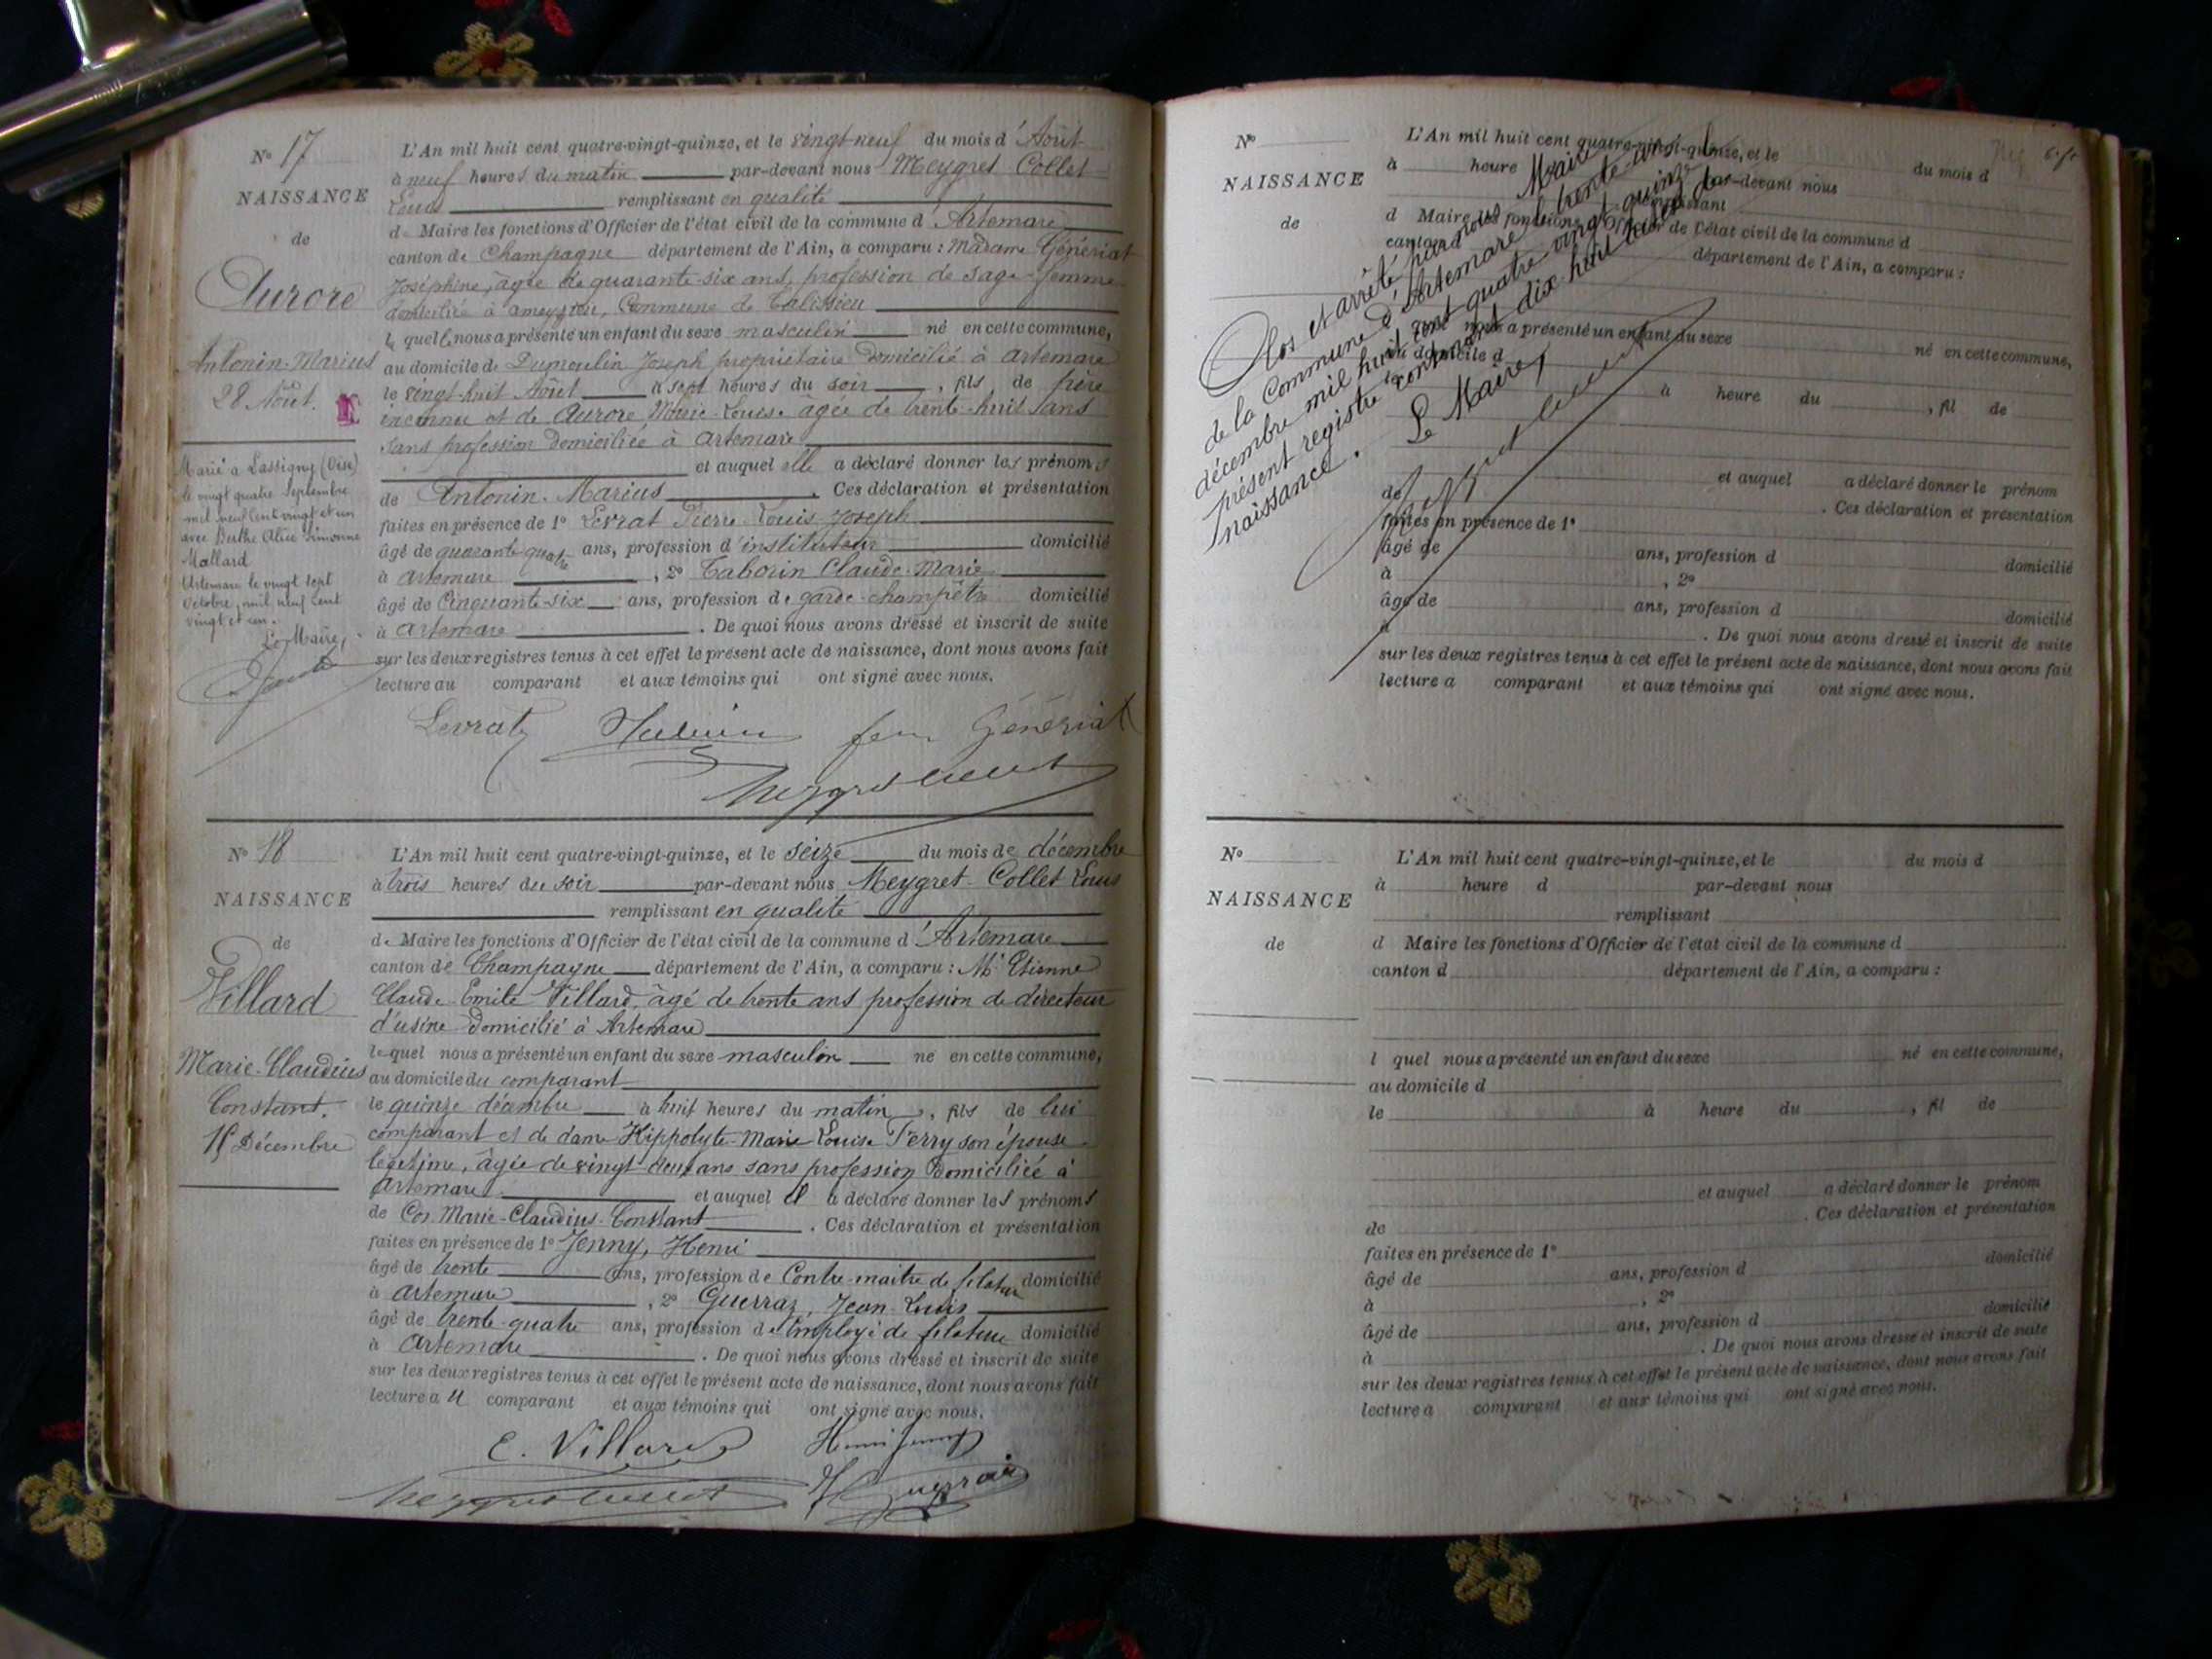 N° 17
NAISSANCE
de
Aurore
Antonin-Marius
28 Août.
Marié à Lassigny (Oise)
le vingt quatre Septembre
mil neuf cent vingt et un
avec Berthe Alice Simonne
Mallard
Artemare le vingt sept
Octobre, mil neuf cent
vingt et un.
Le Maire,
L'An mil huit cent quatre-vingt-quinze, et le vingt-neuf du mois d'Août
à neuf heures du matin par-devant nous Meygret-Collet
Louis remplissant en qualité
de Maire les fonctions d'Officier de l'état civil de la commune d'Artemare
canton de Champagne département de l'Ain, a comparu : Madame Génériat
Joséphine, âgée de quarante-six ans, profession de sage-femme
domiciliée à Ameyzieu, Commune de Talissieu
la quelle nous a présenté un enfant du sexe masculin né en cette commune,
au domicile de Dumoulin Joseph propriétaire domicilié à Artemare
le vingt-huit Août à sept heures du soir, fils de père
inconnu et de Aurore Marie-Louise âgée de trente-huit ans
sans profession domiciliée à Artemare
et auquel elle a déclaré donner les prénoms
de Antonin-Marius. Ces déclaration et présentation
faites en présence de 1° Levrat Pierre-Louis-Joseph
âgé de quarante quatre ans, profession d'instituteur domicilié
à Artemare, 2° Taborin Claude-Marie
âgé de cinquante-six ans, profession de garde-champêtre domicilié
à Artemare. De quoi nous avons dressé et inscrit de suite
sur les deux registres tenus à cet effet le présent acte de naissance, dont nous avons fait
lecture au comparant et aux témoins qui ont signé avec nous.
Levrat Taborin fem Génériat
Meygret Collet
N° 18
NAISSANCE
de
Villard
Marie-Claudius
Constant.
15 Décembre
L'An mil huit cent quatre-vingt-quinze, et le seize du mois de décembre
à trois heures du soir par-devant nous Meygret-Collet Louis
remplissant en qualité
de Maire les fonctions d'Officier de l'état civil de la commune d'Artemare
canton de Champagne département de l'Ain, a comparu : Mr Etienne
Claude-Emile Villard, âgé de trente ans profession de directeur
d'usine domicilié à Artemare
lequel nous a présenté un enfant du sexe masculin né en cette commune,
au domicile du comparant
le quinze décembre à huit heures du matin, fils de lui
comparant et de dame Hippolyte-Marie Louise Ferry son épouse
légitime, âgée de vingt-deux ans sans profession domiciliée à
Artemare et auquel il a déclaré donner les prénoms
de Marie-Claudius-Constant. Ces déclaration et présentation
faites en présence de 1° Jenny, Henri
âgé de trente ans, profession de Contre-maître de filature domicilié
à Artemare, 2° Guerraz, Jean-Louis
âgé de trente-quatre ans, profession d'Employé de filature domicilié
à Artemare. De quoi nous avons dressé et inscrit de suite
sur les deux registres tenus à cet effet le présent acte de naissance, dont nous avons fait
lecture au comparant et aux témoins qui ont signé avec nous.
E. Villard Henri Jenny
Meygret Collet
N°
NAISSANCE
de
L'An mil huit cent quatre-vingt-quinze, et le du mois d
à heure par-devant nous
remplissant
d Maire les fonctions d'Officier de l'état civil de la commune d
canton d département de l'Ain, a comparu :
l quel nous a présenté un enfant du sexe né en cette commune,
au domicile d
à heure du , fil de
et auquel a déclaré donner le prénom
de . Ces déclaration et présentation
faites en présence de 1°
âgé de ans, profession d domicilié
à , 2°
âgé de ans, profession d domicilié
à . De quoi nous avons dressé et inscrit de suite
sur les deux registres tenus à cet effet le présent acte de naissance, dont nous avons fait
lecture a comparant et aux témoins qui ont signé avec nous.
Clos et arrêté par nous Maire
de la Commune d'Artemare le trente un
décembre mil huit cent quatre vingt quinze le
présent registre contenant dix-huit actes de
naissance.
Le Maire,
Meygret Collet
N°
NAISSANCE
de
L'An mil huit cent quatre-vingt-quinze, et le du mois d
à heure d par-devant nous
remplissant
d Maire les fonctions d'Officier de l'état civil de la commune d
canton d département de l'Ain, a comparu :
l quel nous a présenté un enfant du sexe né en cette commune,
au domicile d
le à heure du , fil de
et auquel a déclaré donner le prénom
de . Ces déclaration et présentation
faites en présence de 1°
âgé de ans, profession d domicilié
à , 2°
âgé de ans, profession d domicilié
à . De quoi nous avons dressé et inscrit de suite
sur les deux registres tenus à cet effet le présent acte de naissance, dont nous avons fait
lecture a comparant et aux témoins qui ont signé avec nous.